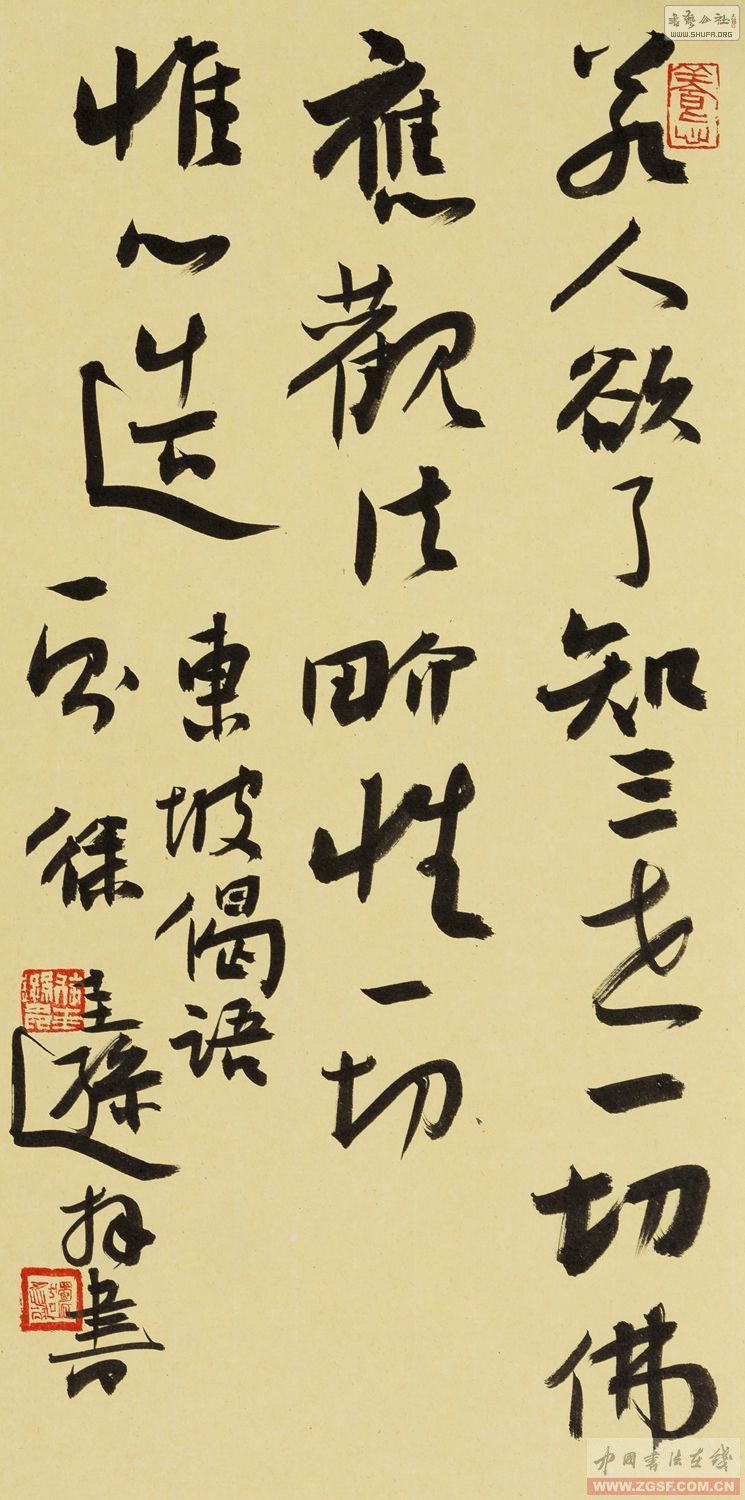 若人欲了知三世一切佛
應觀法界性一切
惟心造
東坡偈語
一品 徐圭遜拜書
書藝公社
WWW.SHUFA.ORG
中国书法在线
WWW.ZGSF.COM.CN